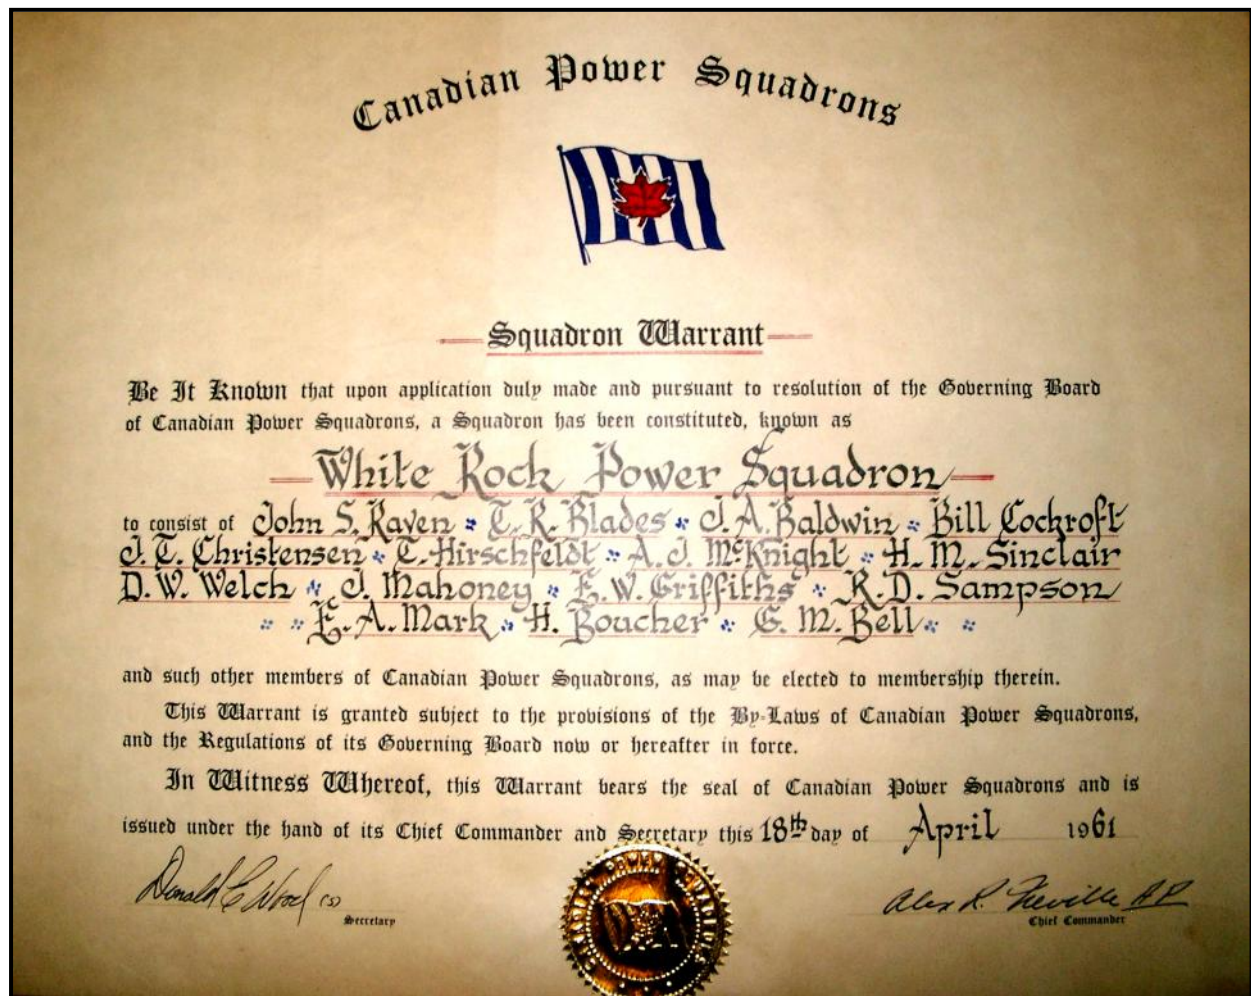 Canadian Power Squadrons
Squadron Warrant
Be It Known that upon application duly made and pursuant to resolution of the Governing Board
of Canadian Power Squadrons, a Squadron has been constituted, known as
White Rock Power Squadron
to consist of John S. Raven T. R. Blades J. A. Baldwin Bill Cockroft
J. T. Christensen T. Hirschfeldt A. J. McKnight H. M. Sinclair
D. W. Welch J. Mahoney E. W. Griffiths R. D. Sampson
E. A. Mark H. Boucher G. M. Bell
and such other members of Canadian Power Squadrons, as may be elected to membership therein.
This Warrant is granted subject to the provisions of the By-Laws of Canadian Power Squadrons,
and the Regulations of its Governing Board now or hereafter in force.
In Witness Whereof, this Warrant bears the seal of Canadian Power Squadrons and is
issued under the hand of its Chief Commander and Secretary this 18th day of April 1961
Donald C Wood (s) Alex R. Neville AP
Secretary Chief Commander
CANADIAN POWER SQUADRONS